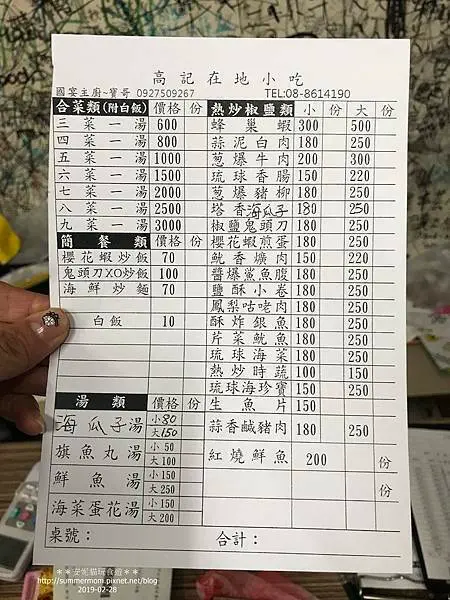 高記在地小吃
國宴主廚~寶哥 0927509267 TEL:08-8614190
合菜類(附白飯) 價格 份
三菜一湯 600
四菜一湯 800
五菜一湯 1000
六菜一湯 1500
七菜一湯 2000
八菜一湯 2500
九菜一湯 3000
簡餐類 價格 份
櫻花蝦炒飯 70
鬼頭刀XO炒飯 100
海鮮炒麵 70
白飯 10
湯類 價格 份
海瓜子湯 小80 大150
旗魚丸湯 小50 大100
鮮魚湯 小150 大250
海菜蛋花湯 小150 大200
桌號：
熱炒椒鹽類 小 份 大 份
蜂巢蝦 300 500
蒜泥白肉 180 250
蔥爆牛肉 200 300
琉球香腸 150 220
蔥爆豬柳 180 250
塔香海瓜子 180 250
椒鹽鬼頭刀 180 250
櫻花蝦煎蛋 180 250
魷香爌肉 150 220
醬爆鯊魚腹 180 250
鹽酥小卷 180 250
鳳梨咕咾肉 180 250
酥炸銀魚 180 250
芹菜魷魚 180 250
琉球海菜 180 250
熱炒時蔬 100 150
琉球海珍寶 150 250
生魚片 150
蒜香鹹豬肉 180 250
紅燒鮮魚 200 份
份
合計：
＊＊安妮貓玩食遊＊＊
http://summermom.pixnet.net/blog
2019-02-28